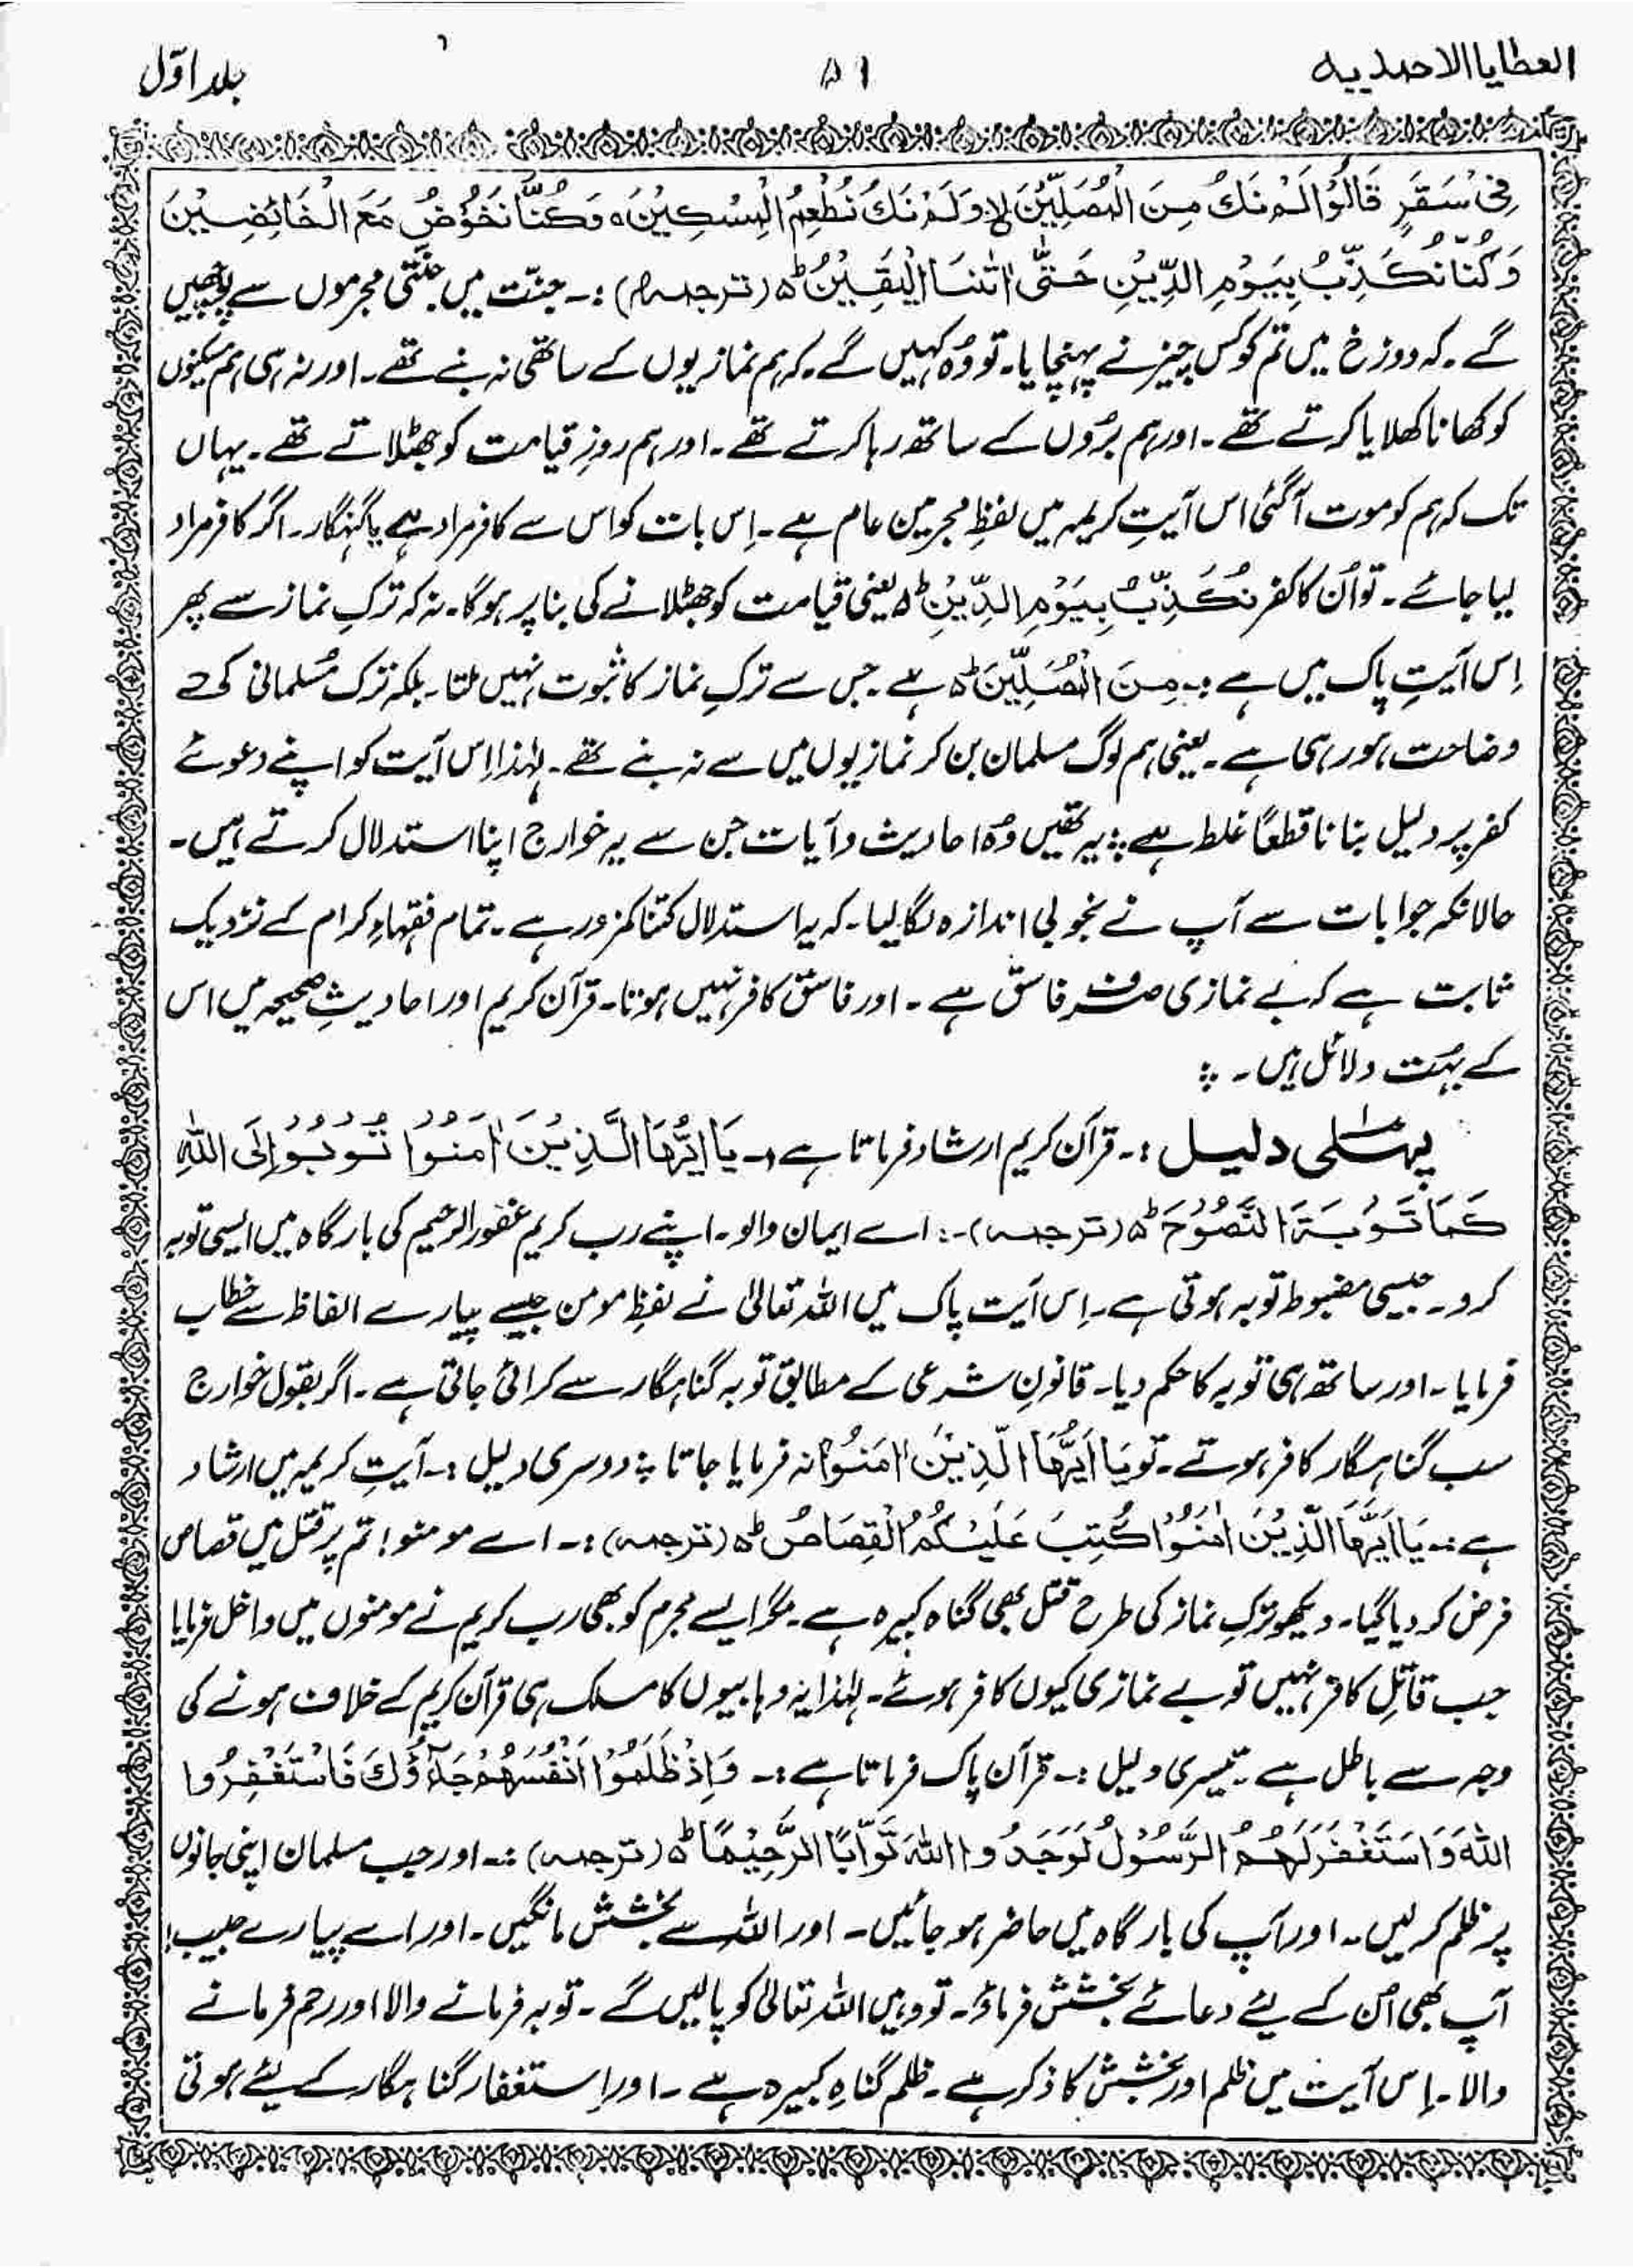 العطایا الاحمدیہ
۵۱
جلد اوّل
فِیْ سَقَرٍ قَالُوْا لَمْ نَكُ مِنَ الْمُصَلِّیْنَ لا وَلَمْ نَكُ نُطْعِمُ الْمِسْكِیْنَ ہ وَكُنَّا نَخُوْضُ مَعَ الْخَائِضِیْنَ
وَكُنَّا نُكَذِّبُ بِیَوْمِ الدِّیْنِ حَتّٰی اَتٰنَا الْیَقِیْنُ ہ (ترجمہ) :۔ جنّت میں جنّتی مجرموں سے پوچھیں
گے۔ کہ دوزخ میں تم کو کس چیز نے پہنچایا۔ تو وُہ کہیں گے۔ کہ ہم نمازیوں کے ساتھی نہ بنے تھے۔ اور نہ ہی ہم مسکینوں
کو کھانا کھلایا کرتے تھے۔ اور ہم بُرُوں کے ساتھ رہا کرتے تھے۔ اور ہم روزِ قیامت کو جھٹلاتے تھے۔ یہاں
تک کہ ہم کو موت آگئی اس آیتِ کریمہ میں لفظِ مجرمین عام ہے۔ اِس بات کو اس سے کافر مراد ہے یا گنہگار۔ اگر کافر مراد
لیا جائے۔ تو اُن کا کفر نُكَذِّبُ بِیَوْمِ الدِّیْنِ ہ یعنی قیامت کو جھٹلانے کی بنا پر ہوگا۔ نہ کہ ترکِ نماز سے پھر
اِس آیتِ پاک میں ہے :۔ مِنَ الْمُصَلِّیْنَ ہ ہے۔ جس سے ترکِ نماز کا ثبوت نہیں ملتا۔ بلکہ ترک مُسلمانی کی
وضاحت ہو رہی ہے۔ یعنی ہم لوگ مسلمان بن کر نمازیوں میں سے نہ بنے تھے۔ لہٰذا اِس آیت کو اپنے دعوئے
کفر پر دلیل بنانا قطعًا غلط ہے ؞ یہ تھیں وُہ احادیث و آیات جن سے یہ خوارج اپنا استدلال کرتے ہیں۔
حالانکہ جوابات سے آپ نے بخوبی اندازہ لگا لیا۔ کہ یہ استدلال کتنا کمزور ہے۔ تمام فقہاءِ کرام کے نزدیک
ثابت ہے کہ بے نمازی صرف فاسق ہے۔ اور فاسق کافر نہیں ہوتا۔ قرآن کریم اور احادیثِ صحیحہ میں اس
کے بہت دلائل ہیں۔ ؞
پہلی دلیل :۔ قرآن کریم ارشاد فرماتا ہے :۔ یَا اَیُّهَا الَّذِیْنَ اٰمَنُوْا تُوْبُوْا اِلَی اللّٰهِ
كَمَا تَوْبَةَ النَّصُوْحَ ہ (ترجمہ) :۔ اے ایمان والو۔ اپنے رب کریم غفور الرحیم کی بارگاہ میں ایسی توبہ
کرو۔ جیسی مضبوط توبہ ہوتی ہے۔ اِس آیت پاک میں اللہ تعالیٰ نے لفظِ مومن جیسے پیارے الفاظ سے خطاب
فرمایا۔ اور ساتھ ہی توبہ کا حکم دیا۔ قانونِ شرعی کے مطابق توبہ گناہگار سے کرائی جاتی ہے۔ اگر بقول خوارج
سب گناہگار کافر ہوتے۔ تو یَا اَیُّهَا الَّذِیْنَ اٰمَنُوْا نہ فرمایا جاتا ؞ دوسری دلیل :۔ آیتِ کریمہ میں ارشاد
ہے :۔ یَا اَیُّهَا الَّذِیْنَ اٰمَنُوْا كُتِبَ عَلَیْكُمُ الْقِصَاصُ ہ (ترجمہ) :۔ اے مومنو! تم پر قتل میں قصاص
فرض کر دیا گیا۔ دیکھو ترکِ نماز کی طرح قتل بھی گناہ کبیرہ ہے۔ مگر ایسے مجرم کو بھی رب کریم نے مومنوں میں داخل فرمایا
جب قاتل کافر نہیں تو بے نمازی کیوں کافر ہوئے۔ لہٰذا یہ وہابیوں کا مسلک ہی قرآن کریم کے خلاف ہونے کی
وجہ سے باطل ہے۔ تیسری دلیل :۔ قرآن پاک فرماتا ہے :۔ وَاِذْ ظَلَمُوْا اَنْفُسَهُمْ جَآءُوْكَ فَاسْتَغْفِرُوا
اللّٰهَ وَاسْتَغْفَرَ لَهُمُ الرَّسُوْلُ لَوَجَدُوا اللّٰهَ تَوَّابًا الرَّحِیْمًا ہ (ترجمہ) :۔ اور جب مسلمان اپنی جانوں
پر ظلم کر لیں۔ اور آپ کی بارگاہ میں حاضر ہو جائیں۔ اور اللہ سے بخشش مانگیں۔ اور اے پیارے حبیب!
آپ بھی اُس کے لیئے دعائے بخشش فرماؤ۔ تو وہیں اللہ تعالیٰ کو پالیں گے۔ توبہ فرمانے والا اور رحم فرمانے
والا۔ اِس آیت میں ظلم اور بخشش کا ذکر ہے۔ ظلم گناہِ کبیرہ ہے۔ اور اِستغفار گناہگار کے لیئے ہوتی